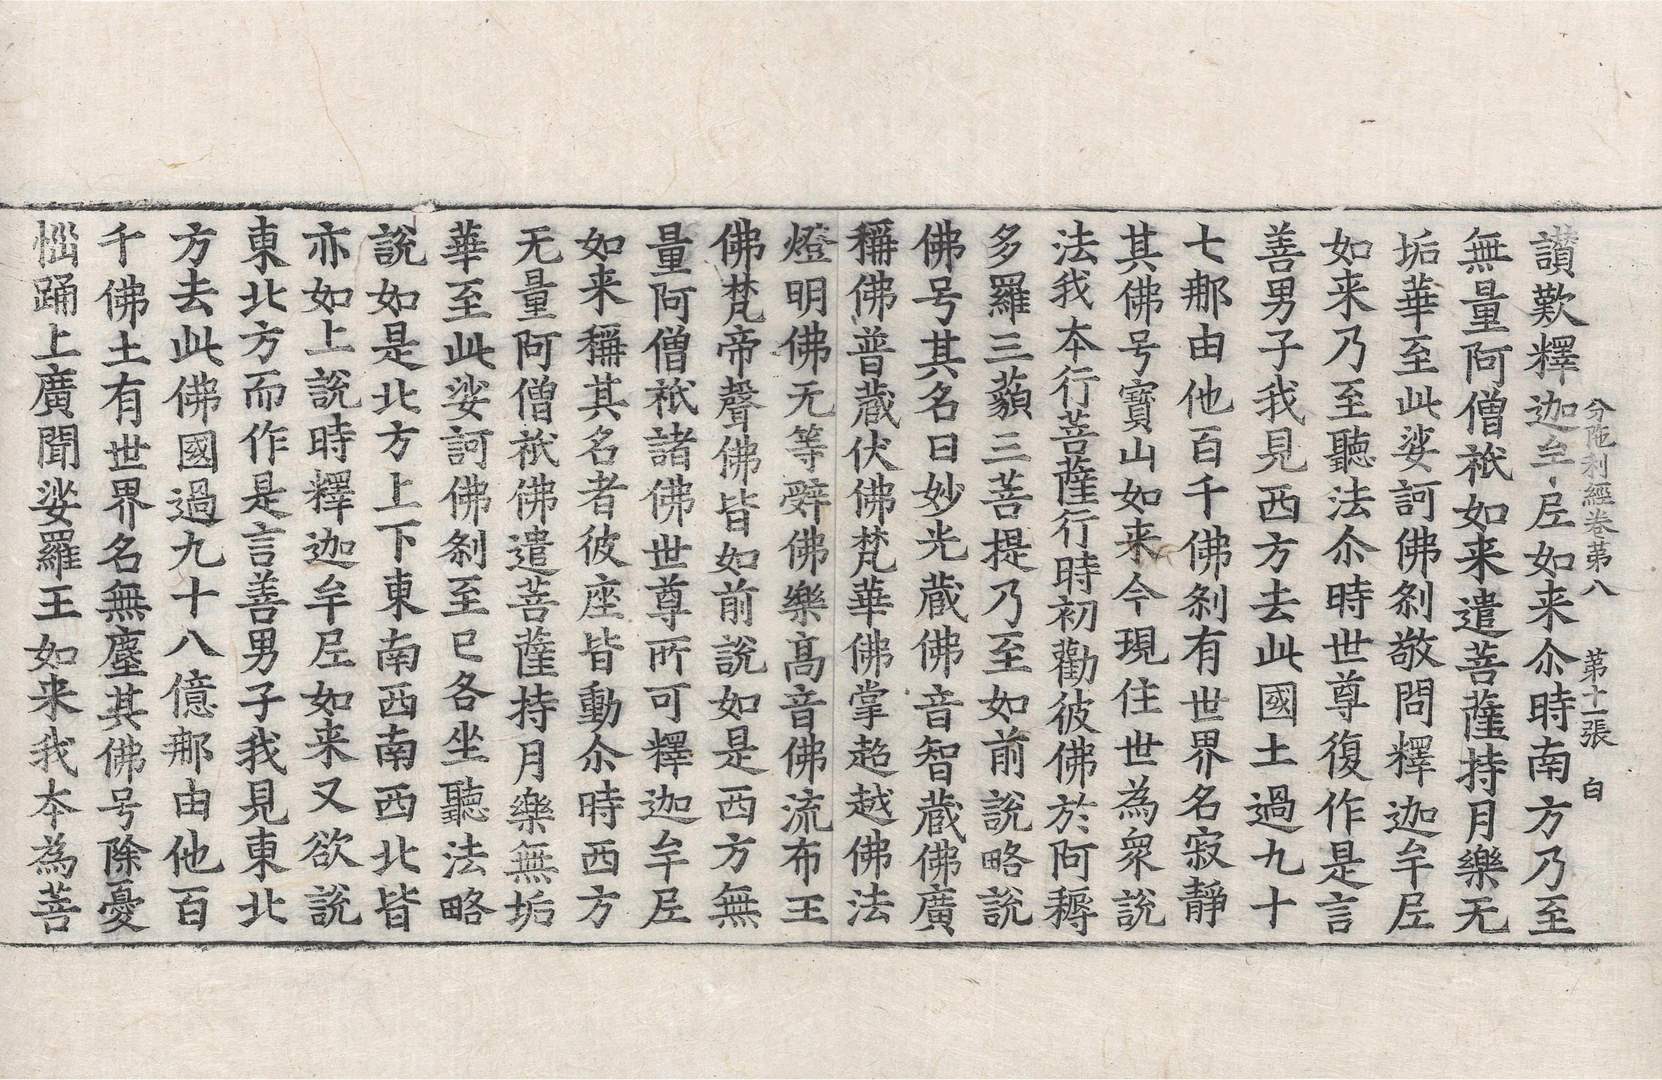 分陁利經卷第八　第十一張　白
讃歎釋迦牟𡰱如来尒時南方乃至
無量阿僧祇如来遣菩薩持月樂无
垢華至此娑訶佛刹敬問釋迦牟𡰱
如来乃至聽法尒時世尊復作是言
善男子我見西方去此國土過九十
七那由他百千佛刹有世界名寂靜
其佛号寶山如来今現住世為衆說
法我夲行菩薩行時初勸彼佛於阿耨
多羅三藐三菩提乃至如前說略說
佛号其名曰妙光蔵佛音智蔵佛廣
稱佛普蔵伏佛梵華佛掌超越佛法
燈明佛无等辤佛樂高音佛流布王
佛梵帝聲佛皆如前說如是西方無
量阿僧祇諸佛世尊所可釋迦牟𡰱
如来稱其名者彼座皆動尒時西方
无量阿僧祇佛遣菩薩持月樂無垢
華至此娑訶佛刹至已各坐聽法略
說如是北方上下東南西南西北皆
亦如上說時釋迦牟𡰱如来又欲說
東北方而作是言善男子我見東北
方去此佛國過九十八億那由他百
千佛土有世界名無塵其佛号除憂
惱踊上廣聞娑羅王如来我夲為菩